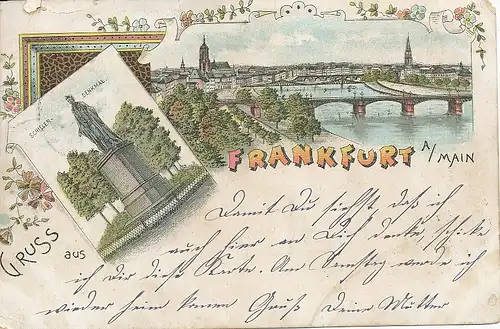 SCHILLER-DENKMAL
FRANKFURT A/MAIN
GRUSS aus
Damit Du siehst daß ich
auch hier an Dich denke, schicke
ich Dir diese Karte. Am Samstag werde ich
wieder heim kommen Gruß Deine Mutter